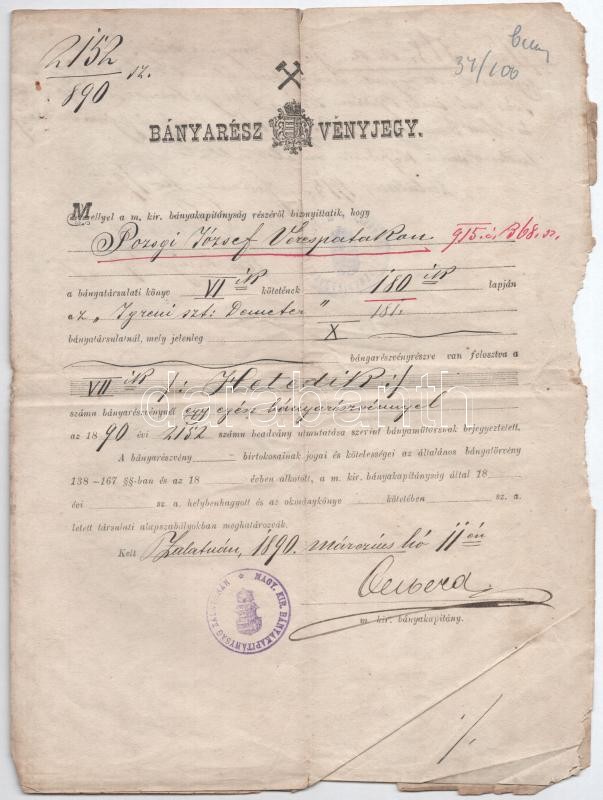 2152
890 sz.
37/100
BÁNYARÉSZ VÉNYJEGY.
Mellyel a m. kir. bányakapitányság részéről bizonyittatik, hogy
Pozsgi József Verespatakon 915. és B68. sz.
a bányatársulati könyv VI ik kötetének 180 ik lapján
az „Igreni szt: Demeter" 181.
bányatársulatnál, mely jelenleg X
bányarészvényrészre van felosztva a
VII ik /: Hetedik :/
számu bányarészvénynél egy egész bányarészvénynyel
az 1890 évi 2152 számu beadvány utmutatása szerint bányaműtorznak bejegyeztetett.
A bányarészvény birtokosainak jogai és kötelességei az általános bányatörvény
138–167 §§-ban és az 18 évben alkotott, a m. kir. bányakapitányság által 18
évi sz. a. helybenhagyott és az okmánykönyv kötetében sz. a.
letett társulati alapszabályokban meghatározvák.
Kelt Zalatnán, 1890. márczius hó 11 én
m. kir. bányakapitány.
MAGY. KIR. BÁNYAKAPITÁNYSÁG ZALATNÁN
darabanth